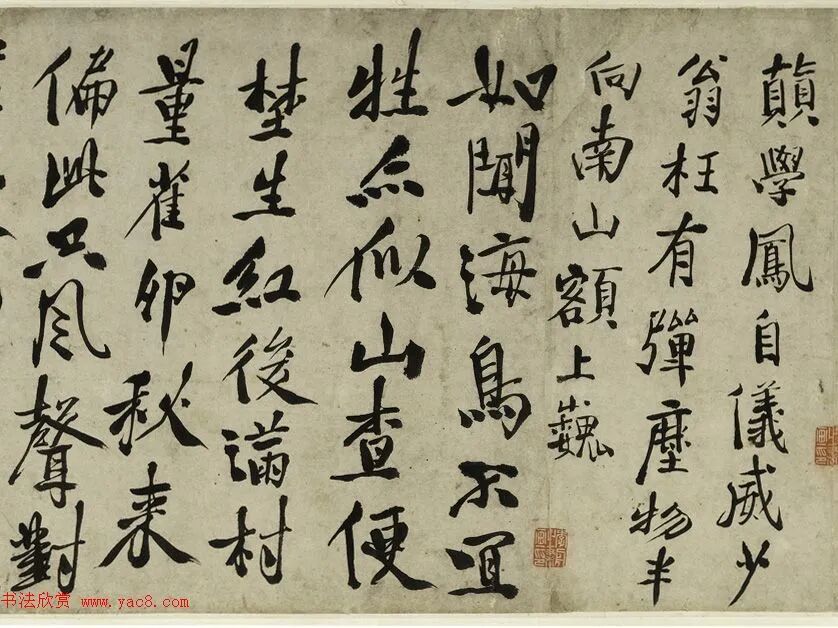 顛學鳳自儀威少
翁枉有彈麈物半
向南山額上巍
如聞海鳥不宜
牲亦似山查便
埜生紅後滿村
量雀卵秋来
偏此只風聲對
书法欣赏 www.yac8.com